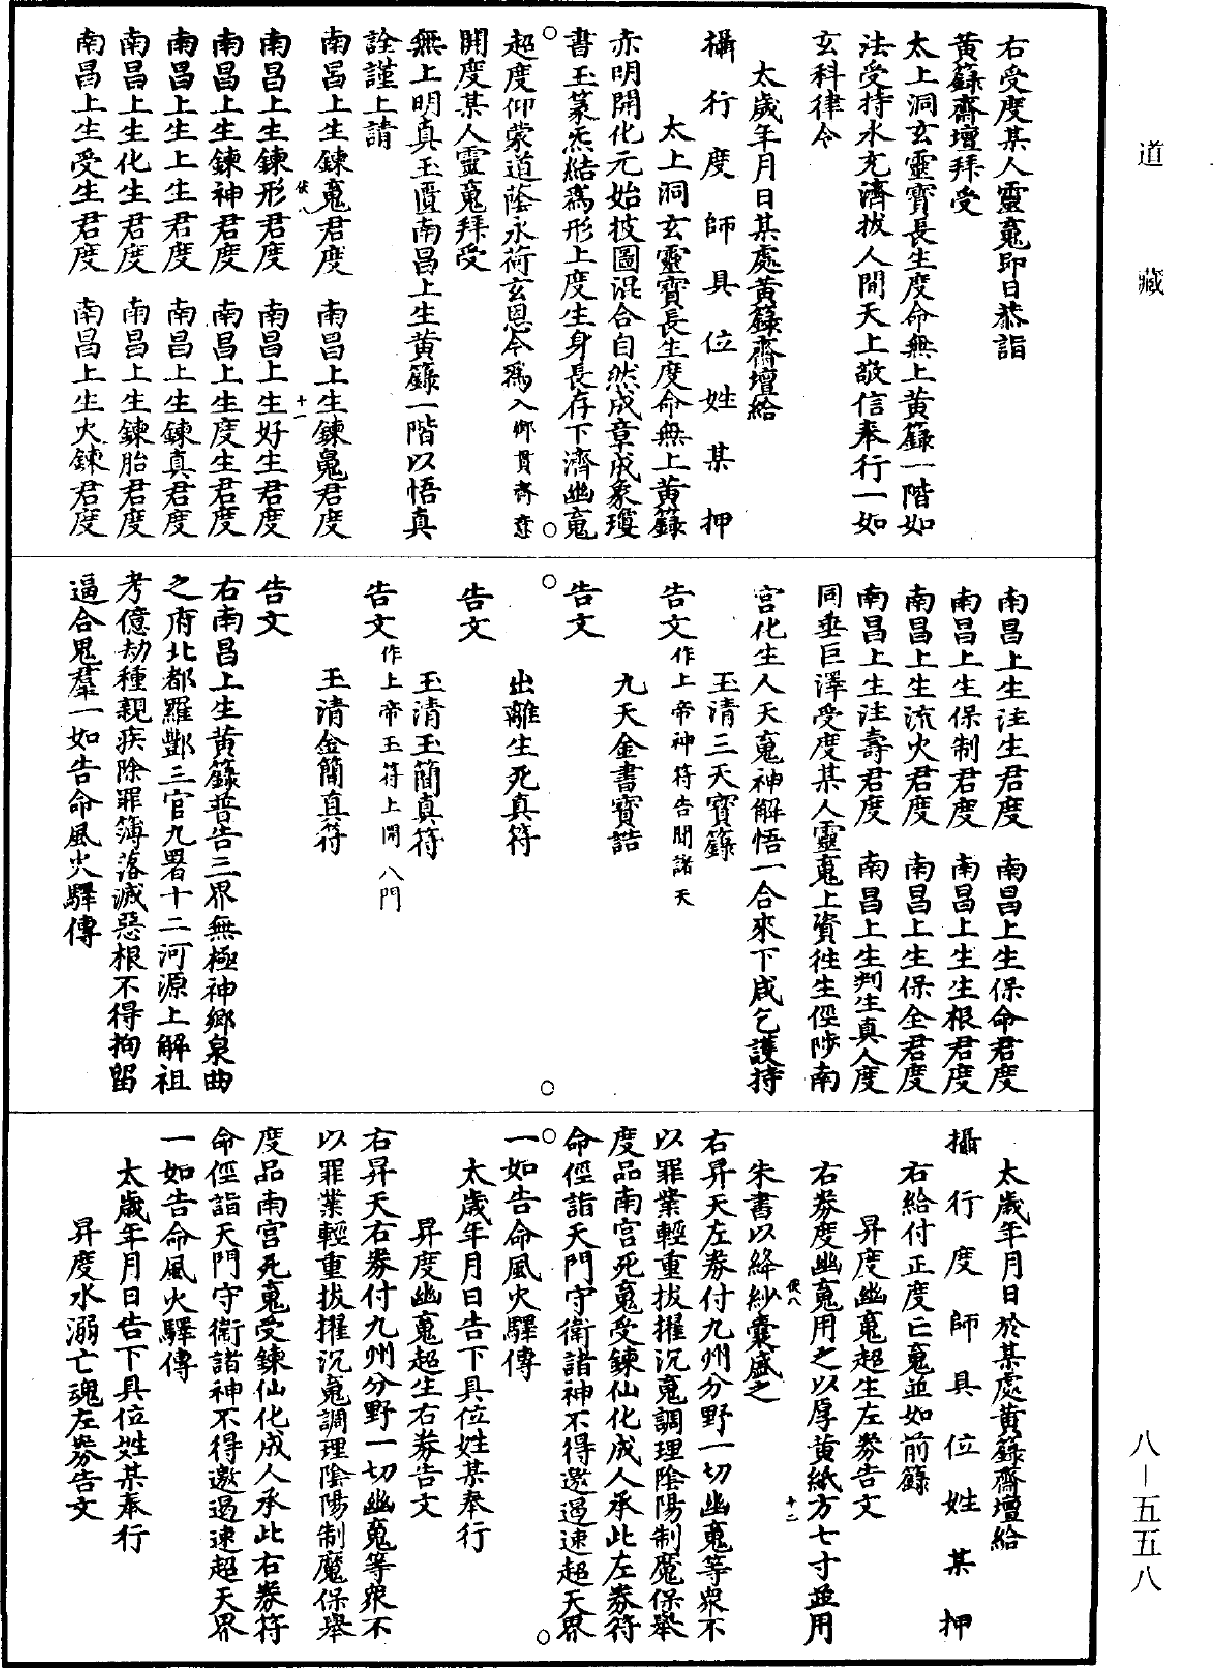 道藏
右受度某人靈䰟即日恭詣
黃籙齋壇拜受
太上洞玄靈寶長生度命無上黃籙一階如
法受持水充濟拔人間天上敬信奉行一如
玄科律令
太歲年月日某處黃籙齋壇給
攝行度師具位姓某押
太上洞玄靈寶長生度命無上黃籙
赤明開化元始披圖混合自然成章成象瓊
書玉篆炁結爲形上度生身長存下濟幽䰟
超度仰蒙道蔭永荷玄恩今爲入鄉貫齋意
開度某人靈䰟拜受
無上明真玉匱南昌上生黃籙一階以悟真
詮謹上請
南昌上生鍊䰟君度 南昌上生鍊䰟君度
南昌上生鍊形君度 南昌上生好生君度
南昌上生鍊神君度 南昌上生度生君度
南昌上生上生君度 南昌上生鍊真君度
南昌上生化生君度 南昌上生鍊胎君度
南昌上生受生君度 南昌上生火鍊君度
俠八
十一
南昌上生注生君度 南昌上生保命君度
南昌上生保制君度 南昌上生生根君度
南昌上生流火君度 南昌上生保全君度
南昌上生注壽君度 南昌上生判生真人度
同垂巨澤受度某人靈䰟上資徃生徑陟南
宮化生人天䰟神解悟一合來下咸乞護持
玉清三天寶籙
告文作上帝神符告聞諸天
九天金書寶誥
告文
出離生死真符
告文
玉清玉簡真符
告文作上帝玉符上開八門
玉清金簡真符
告文
右南昌上生黃籙普告三界無極神鄉泉曲
之府北都羅酆三官九署十二河源上解祖
考億劫種親疾除罪簿落滅惡根不得拘留
逼合鬼羣一如告命風火驛傳
太歲年月日於某處黃籙齋壇給
攝行度師具位姓某押
右給付正度亡䰟並如前籙
昇度幽䰟超生左券告文
右券度幽䰟用之以厚黃紙方七寸並用
朱書以絳紗囊盛之
俠八
十二
右昇天左券付九州分野一切幽䰟等衆不
以罪業輕重拔擢沉䰟調理陰陽制魔保舉
度品南宮死䰟受鍊仙化成人承此左券符
命徑詣天門守衛諸神不得邀遏速超天界
一如告命風火驛傳
太歲年月日告下具位姓某奉行
昇度幽䰟超生右券告文
右昇天右券付九州分野一切幽䰟等衆不
以罪業輕重拔擢沉䰟調理陰陽制魔保舉
度品南宮死䰟受鍊仙化成人承此右券符
命徑詣天門守衛諸神不得邀遏速超天界
一如告命風火驛傳
太歲年月日告下具位姓某奉行
昇度水溺亡魂左券告文
八—五五八